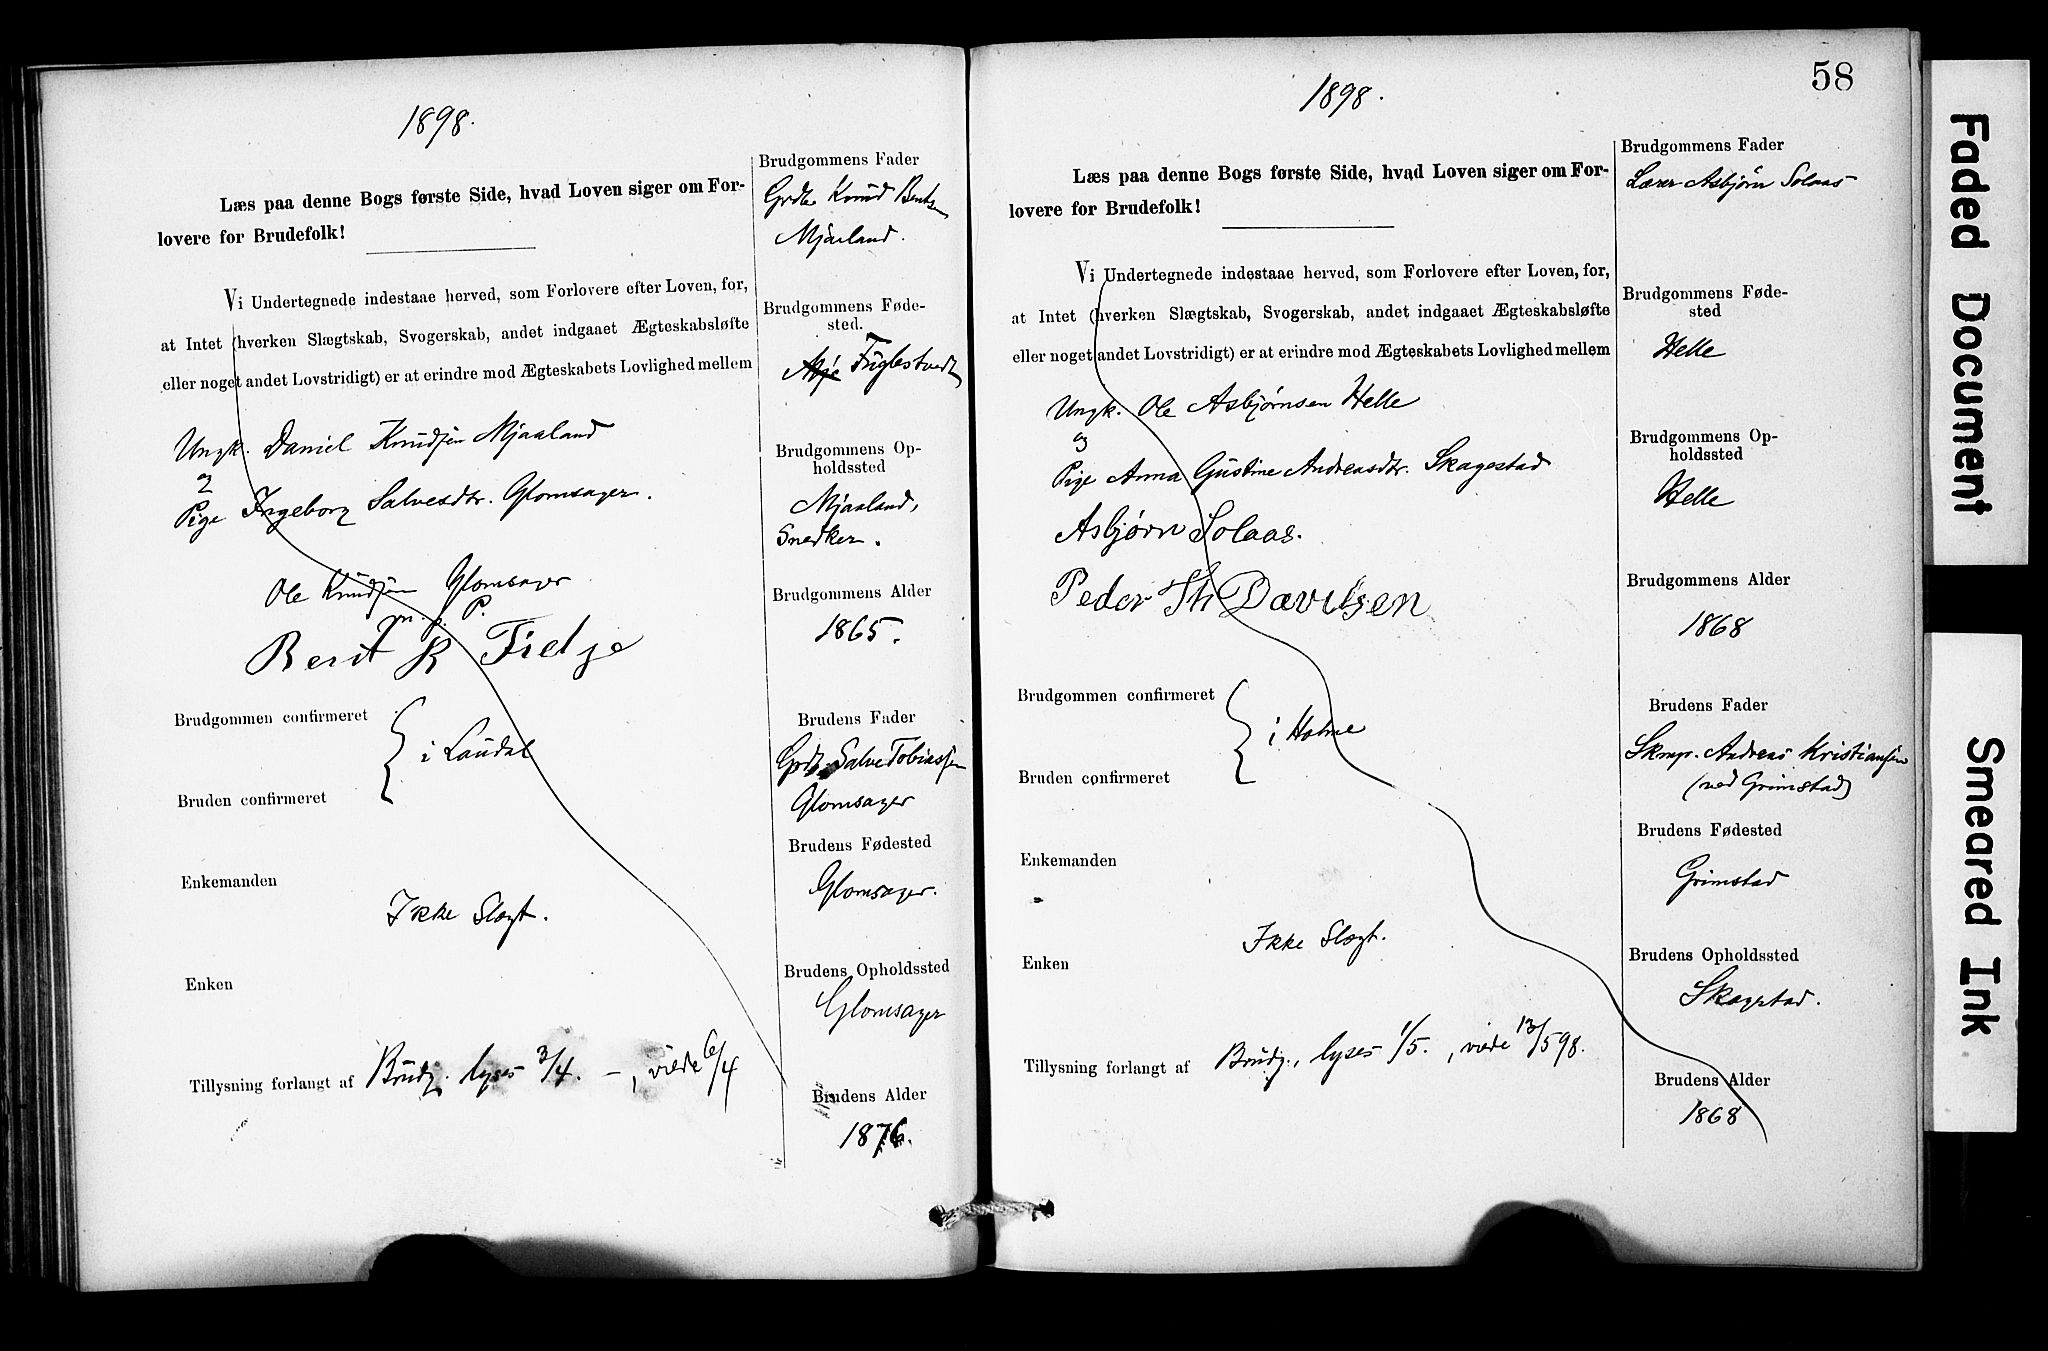 1898.
Læs paa denne Bogs første Side, hvad Loven siger om For-
lovere for Brudefolk!
Vi Undertegnede indestaae herved, som Forlovere efter Loven, for,
at Intet (hverken Slægtskab, Svogerskab, andet indgaaet Ægteskabsløfte
eller noget andet Lovstridigt) er at erindre mod Ægteskabets Lovlighed mellem
Ungk. Daniel Knudsen Mjaaland
og
Pige Ingeborg Salvesdtr. Glomsager.
Ole Knudsen Glomsager
m. p. P.
Berit K Fielje
Brudgommen confirmeret
i Laudal
Bruden confirmeret
Enkemanden
Ikke Slægt.
Enken
Tillysning forlangt af Brudg. lyses 3/4. —, viede 6/4
Brudgommens Fader
Grdbr Knud Bentsen
Mjaaland.
Brudgommens Føde-
sted.
Fuglestvedt
Brudgommens Op-
holdssted
Mjaaland,
Snedker.
Brudgommens Alder
1865.
Brudens Fader
Grdb. Salve Tobiassen
Glomsager
Brudens Fødested
Glomsager.
Brudens Opholdssted
Glomsager
Brudens Alder
1876.
58
1898.
Læs paa denne Bogs første Side, hvad Loven siger om For-
lovere for Brudefolk!
Vi Undertegnede indestaae herved, som Forlovere efter Loven, for,
at Intet (hverken Slægtskab, Svogerskab, andet indgaaet Ægteskabsløfte
eller noget andet Lovstridigt) er at erindre mod Ægteskabets Lovlighed mellem
Ungk. Ole Asbjørnsen Helle
og
Pige Anna Gustine Andreasdtr. Skagestad
Asbjørn Solaas.
Peder Th Davidsen
Brudgommen confirmeret
i Holme
Bruden confirmeret
Enkemanden
Ikke Slægt.
Enken
Tillysning forlangt af Brudg., lyses 1/5., viede 13/5 98.
Brudgommens Fader
Lærer Asbjørn Solaas
Brudgommens Føde-
sted
Helle
Brudgommens Op-
holdssted
Helle
Brudgommens Alder
1868
Brudens Fader
Skmpr. Andreas Kristiansen
(ved Grimstad)
Brudens Fødested
Grimstad
Brudens Opholdssted
Skagestad.
Brudens Alder
1868
Faded Document
Smeared Ink